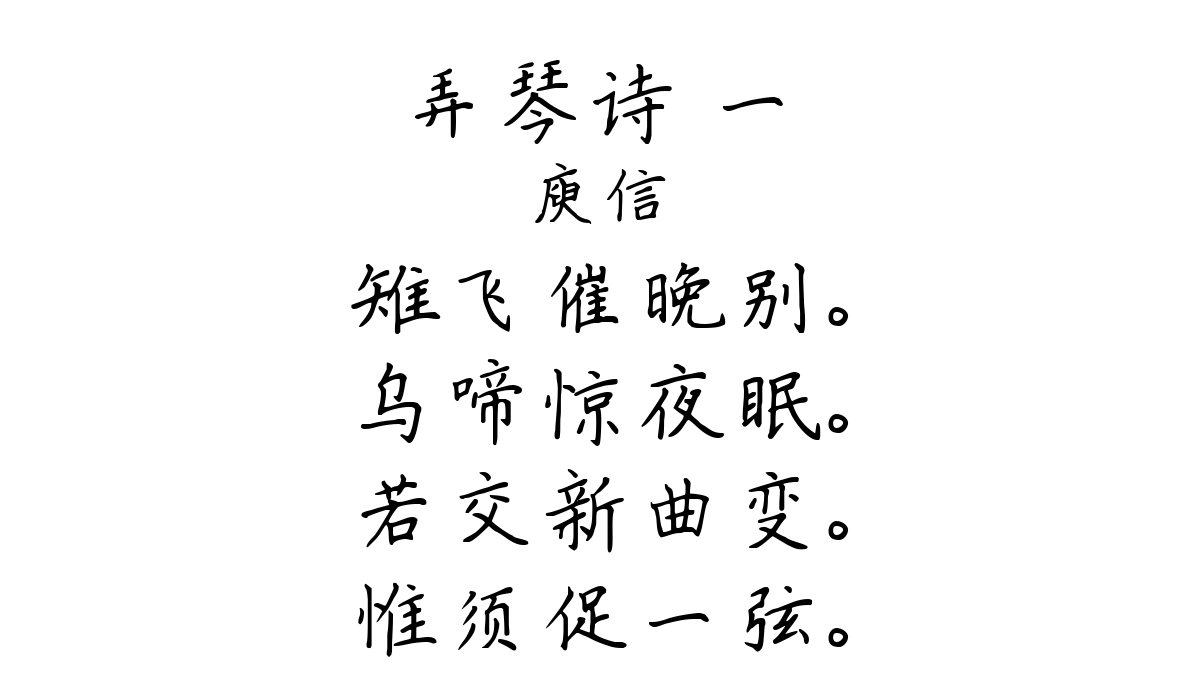 弄琴诗 一
庾信
雉飞催晚别。
乌啼惊夜眠。
若交新曲变。
惟须促一弦。